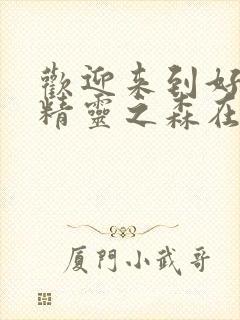 歡迎来到好
精靈之森在
厦門小武哥